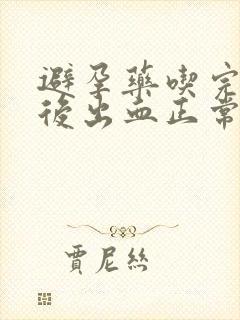 避孕藥喫完
後出血正常
賈尼絲